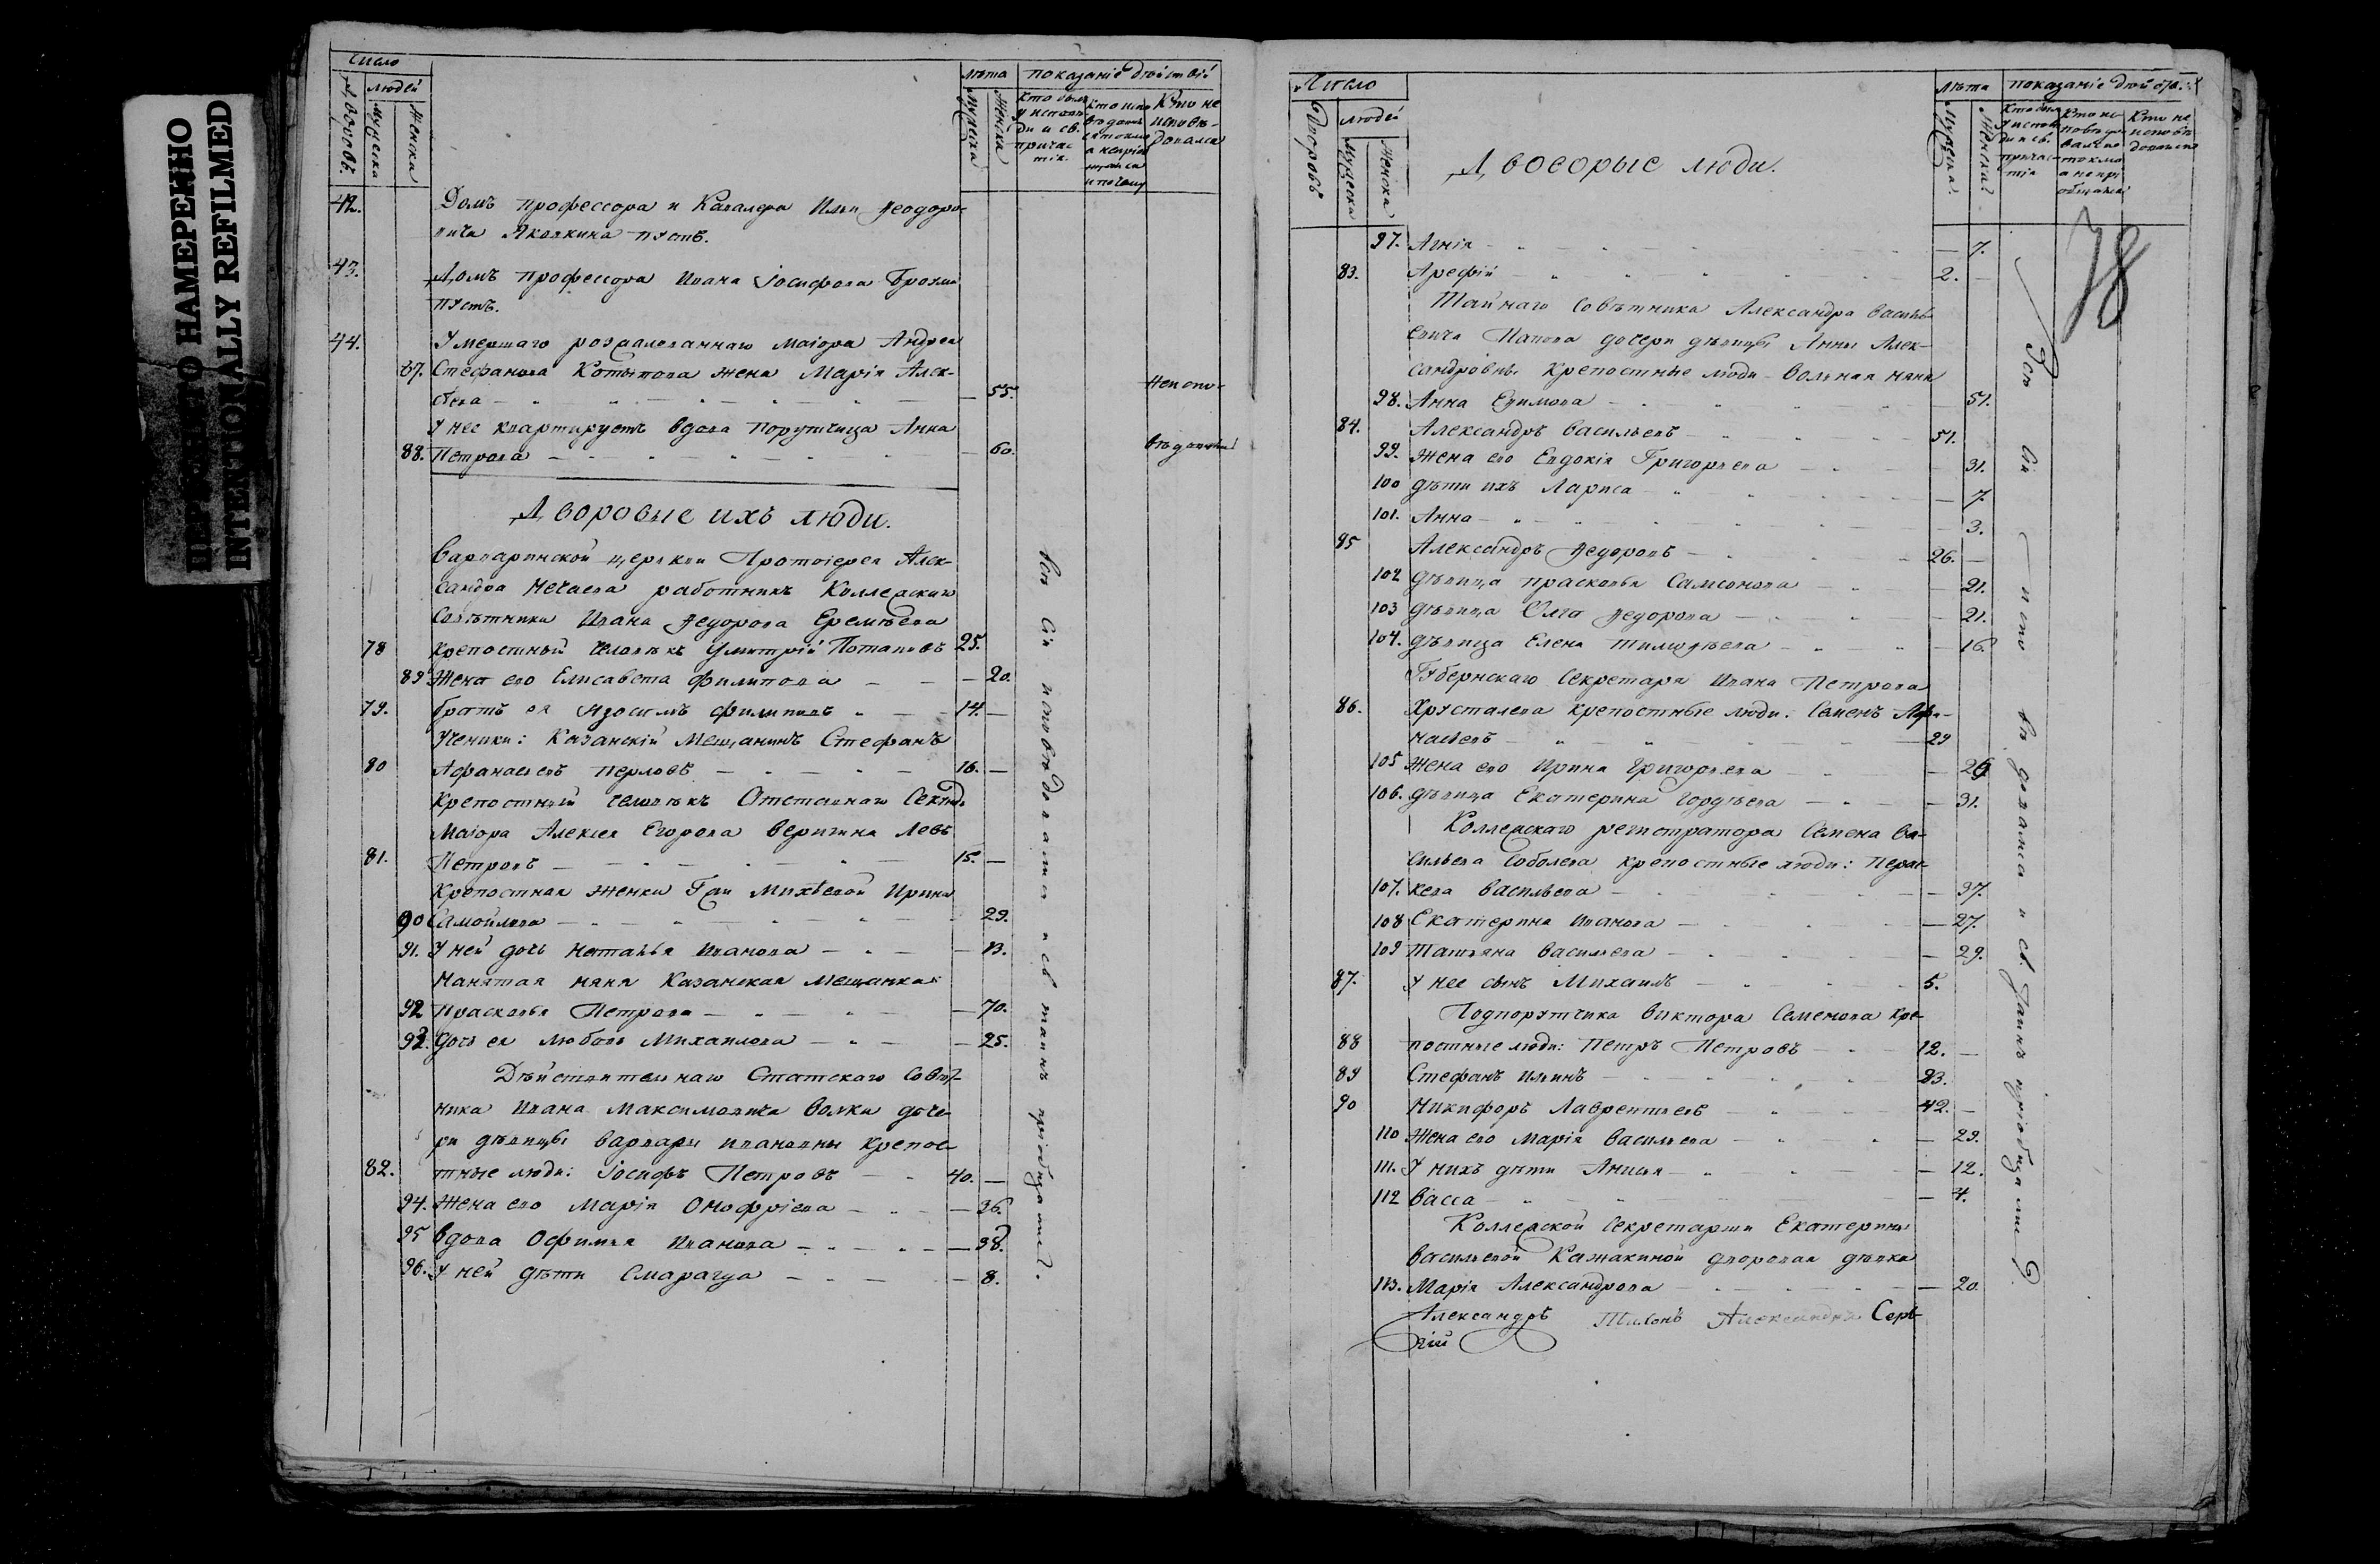 ПЕРЕСНЯТО НАМЕРЕННО
INTENTIONALLY REFILMED
Число
дворовъ.
людей
мужеска
женска
лѣта
мужеска
женска
показаніе дѣйствій
кто былъ
у исповѣ-
ди и св.
причас-
тія.
Кто не
исповѣ-
дывался
42. Домъ профессора и Кавалера Ильи Ѳеодоро-
вича Яковкина пустъ.
43. Домъ профессора Ивана Іосифова
пустъ.
44. Умершаго Маіора Андрея
87. Стефанова Котыпова жена Марія Алек-
сѣева 55. Неиспо-
У нее квартируетъ вдова Порутчица Анна
88. Петрова 60.
Дворовые ихъ люди.
Варваринской церкви Протоіерея Алек-
сандра Нечаева работникъ Коллежскаго
Совѣтника Ивана Ѳедорова Еремѣева
78 Крепостный человѣкъ Дмитрій Потаповъ 25.
89 Жена его Елисавета Филипова 20.
79. Братъ ея Изосимъ Филиповъ 14.
Ученики: Казанскій Мещанинъ Стефанъ
80 Афанасьевъ Перловъ 16.
Крепостный человѣкъ Отставнаго Секунд-
Маіора Алексея Егорова Веригина Левъ
81. Петровъ 15.
Крепостная женка Гжи Михѣевой Ирина
90 Самойлова 29.
91. У ней дочь Наталья Иванова 13.
Нанятая няня Казанская Мещанка:
92 Прасковья Петрова 70.
93. Дочь ея Любовь Михайлова 25.
Дѣйствительнаго Статскаго Совѣт-
ника Ивана Максимовича Волка доче-
ри дѣвицы Варвары Ивановны крепос-
82. тные люди: Іосифъ Петровъ 40.
94. Жена его Марія Онофріева 36.
95 Вдова Офимья Иванова 38.
96. У ней дѣти Смарагда 8.
Всѣ сіи исповѣдовались и св. таинъ пріобщались.
Число
дворовъ
людей
Мужеска
Женска
Дворовые люди.
лѣта
Мужеска
Женска
показаніе дѣйств:
Кто былъ
у испов.
ди и св.
причас-
тія
Кто не
исповѣ-
дывался
78
97. Агнія 7.
83. Арефій 2.
Тайнаго Совѣтника Александра Василь-
евича Папова дочери дѣвицы Анны Алек-
сандровны Крепостные люди вольная няня
98. Анна Ефимова 51.
84. Александръ Васильевъ 51.
99. Жена его Евдокія Григорьева 31.
100 Дѣти ихъ Лариса 7.
101. Анна 3.
85 Александръ Ѳедоровъ 26.
102 дѣвица Прасковья Самсонова 21.
103 дѣвица Олга Ѳедорова 21.
104. дѣвица Елена Тимофѣева 16.
Губернскаго Секретаря Ивана Петрова
86. Хрусталева крепостные люди: Семенъ Афа-
насьевъ 29
105 Жена его Ирина Григорьева 26
106. дѣвица Екатерина Гордѣева 31.
Коллежскаго регистратора Семена Ва-
сильева Соболева крепостные люди: Перас-
107. кева Васильева 37.
108 Екатерина Иванова 27.
109 Татьяна Васильева 29.
87. У нее сынъ Михаилъ 5.
Подпорутчика Виктора Семенова кре-
88 постные люди: Петръ Петровъ 12.
89 Стефанъ Ильинъ 23.
90 Никифоръ Лаврентьевъ 42.
110 Жена его Марія Васильева 29.
111. У нихъ дѣти Анисья 12.
112 Васса 4.
Коллежской Секретарши Екатерины
Васильевой Кажакиной дворовая дѣвка
113. Марія Александрова 20.
Александръ Тихонъ Александра Сер-
гій
Всѣ сіи исповѣдовались и св. Таинъ пріобщались